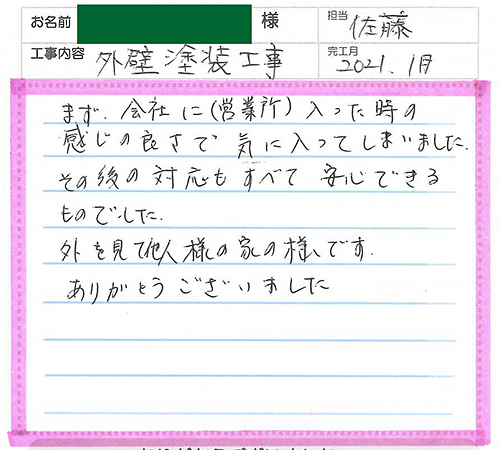 お名前 様 担当 佐藤
工事内容 外壁塗装工事 完工月 2021.1月
まず、会社に(営業所)入った時の
感じの良さで気に入ってしまいました.
その後の対応もすべて 安心できる
ものでした.
外を見て他人様の家の様です.
ありがとうございました